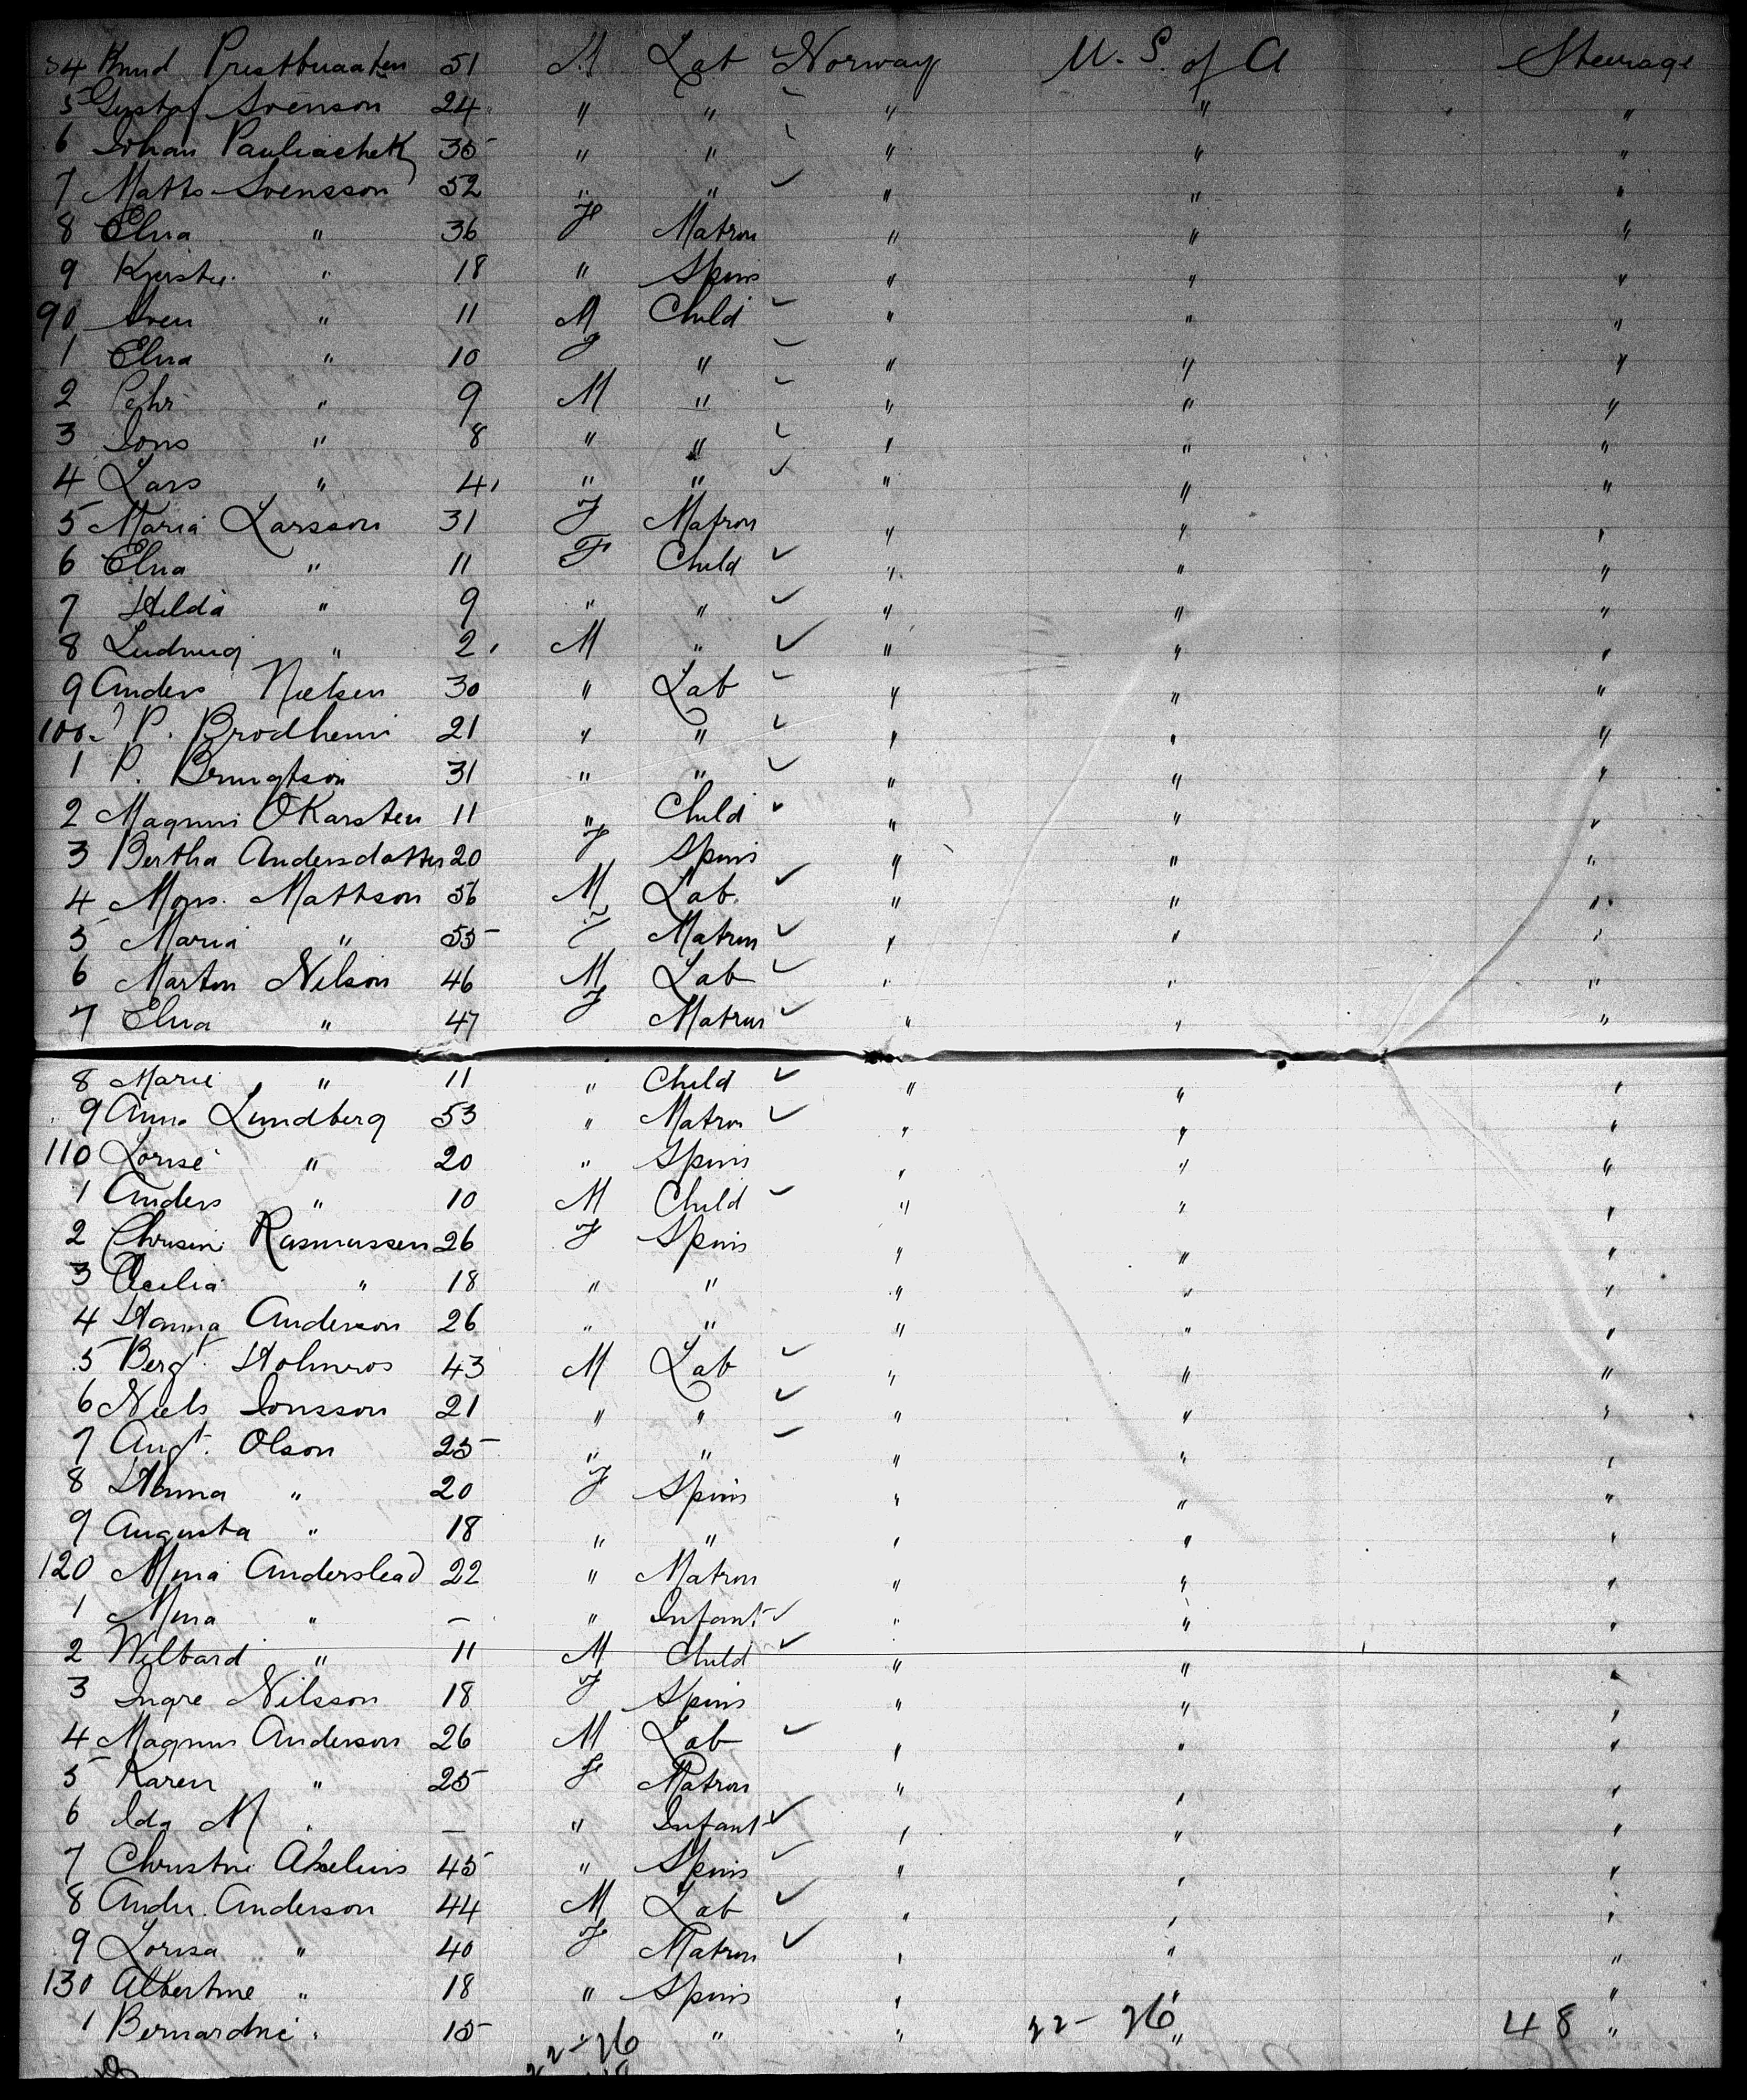 84 Knud Prestbraaten 51 M Lab ✓ Norway U. S. of A Steerage
5 Gustaf Svenson 24 " " ✓ " " "
6 Johan 35 " " ✓ " " "
7 Matts Svensson 52 " " ✓ " " "
8 Elna " 36 F Matron " " "
9 Kjerstie " 18 " Spins " " "
90 Sven " 11 M Child ✓ " " "
1 Elna " 10 F " ✓ " " "
2 Pehr " 9 M " ✓ " " "
3 Jons " 8 " " ✓ " " "
4 Lars " 4 " " ✓ " " "
5 Maria Larsson 31 F Matron " " "
6 Elna " 11 F Child ✓ " " "
7 Hilda " 9 " " ✓ " " "
8 Ludwig " 2 M " ✓ " " "
9 Anders Nielsen 30 " Lab ✓ " " "
100 P. Brodheim 21 " " ✓ " " "
1 P. Brungtson 31 " " ✓ " " "
2 Magnus OKarsten 11 " Child ✓ " " "
3 Bertha Andersdatter 20 F Spins " " "
4 Mons. Mattson 56 M Lab. ✓ " " "
5 Maria " 55 F Matron ✓ " " "
6 Marton Nilson 46 M Lab ✓ " " "
7 Elna " 47 F Matron ✓ " " "
8 Marie " 11 " Child ✓ " " "
9 Anna Lundberg 53 " Matron ✓ " " "
110 Lorise " 20 " Spins " " "
1 Anders " 10 M Child ✓ " " "
2 Chrisine Rasmussen 26 F Spins " " "
3 Cecilia " 18 " " " " "
4 Hanna Anderson 26 " " " " "
5 Bergt. Holmros 43 M Lab ✓ " " "
6 Niels Jonsson 21 " " ✓ " " "
7 Augt. Olson 25 " " ✓ " " "
8 Hanna " 20 F Spins " " "
9 Augusta " 18 " " " " "
120 Mina Anderslead 22 " Matron " " "
1 Mina " — " Infant ✓ " " "
2 Wilbard " 11 M Child ✓ " " "
3 Ingre Nilsson 18 F Spins " " "
4 Magnus Anderson 26 M Lab ✓ " " "
5 Karen " 25 F Matron " " "
6 Ida M " — " Infant ✓ " " "
7 Christine Abelius 45 " Spins ✓ " " "
8 Ander. Anderson 44 M Lab ✓ " " "
9 Lorisa " 40 F Matron ✓ " " "
130 Albertine " 18 " Spins " " "
1 Bernardine " 15 " " " " "
22-26 22-26 48